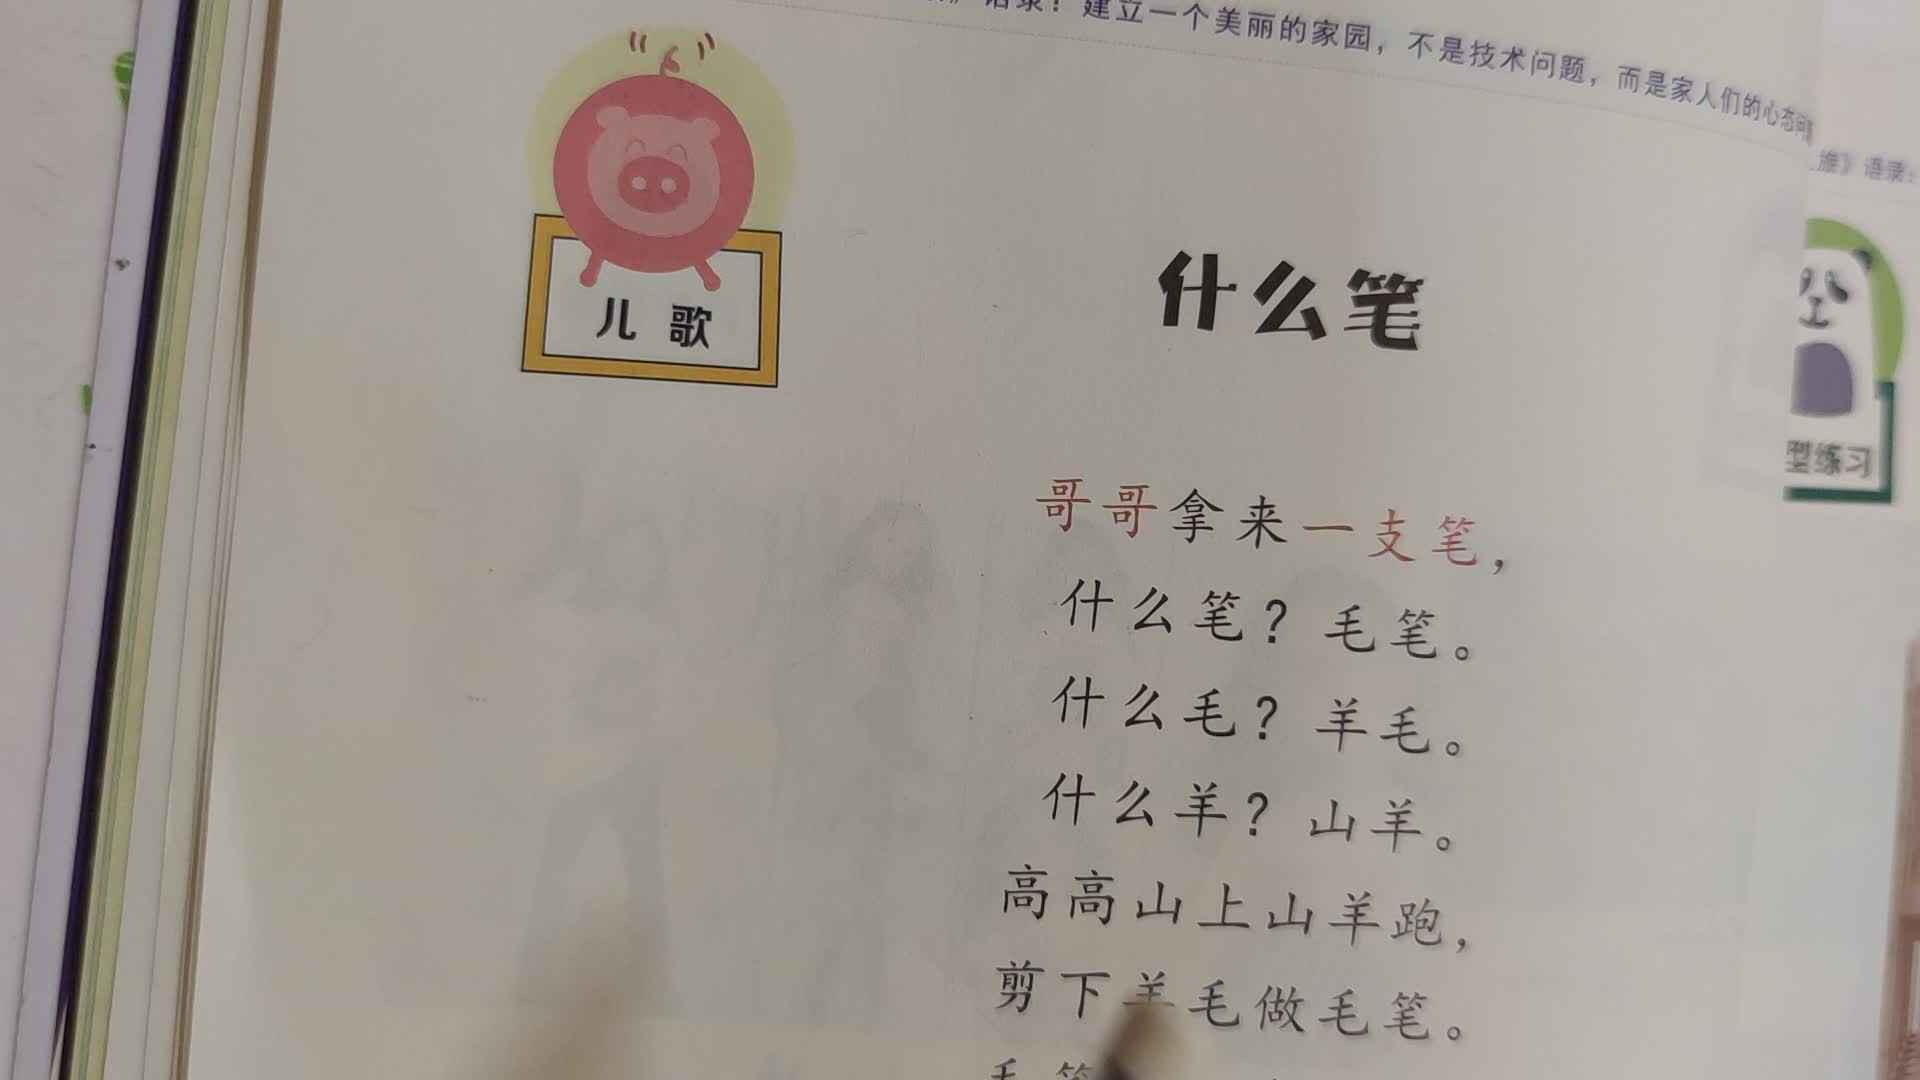 语录：建立一个美丽的家园，不是技术问题，而是家人们的心态问
旅》语录：
儿歌
什么笔
型练习
哥哥拿来一支笔，
什么笔？毛笔。
什么毛？羊毛。
什么羊？山羊。
高高山上山羊跑，
剪下羊毛做毛笔。
毛笔